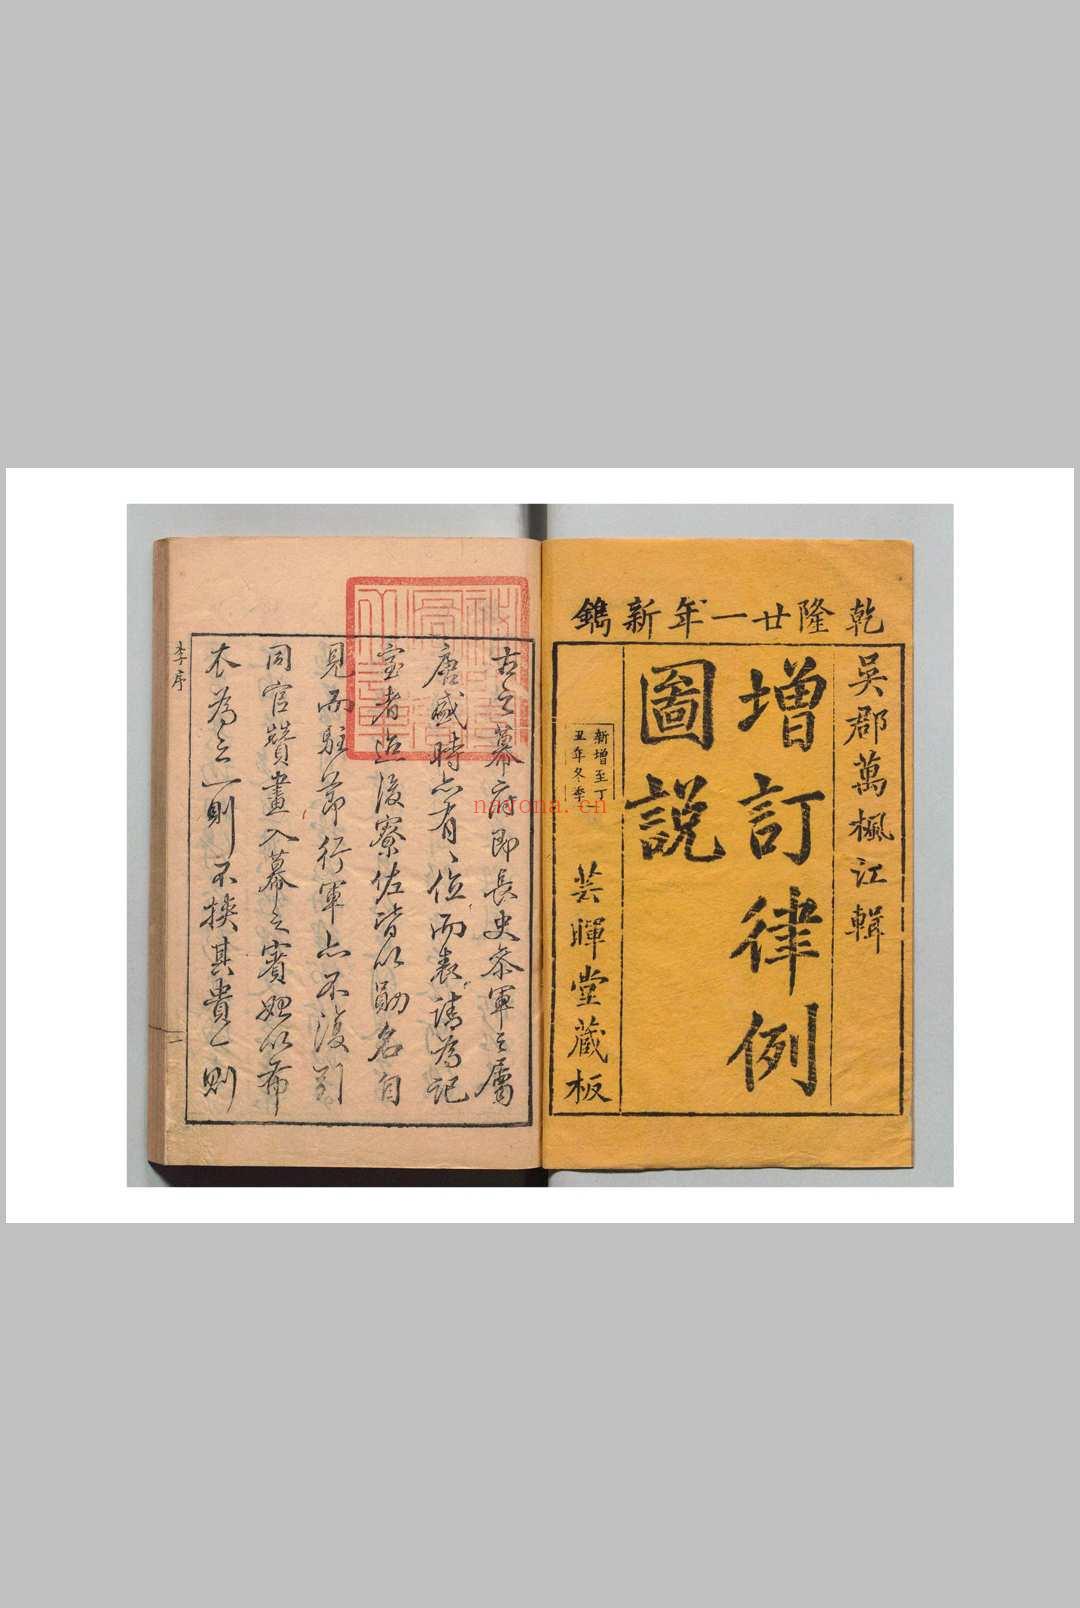 乾隆廿一年新鐫
吳郡萬楓江輯
增訂律例
圖說
新增至丁
丑年冬季
芸暉堂藏板
古之幕府即長史參軍之屬
唐盛時亦有、位而表請為記
室者迨後寮佐皆以勛名自
見而駐節行軍亦不復列
同官贊畫入幕之賓始以布
衣為之一則不挾其貴一則
李序
一
nayona.cn